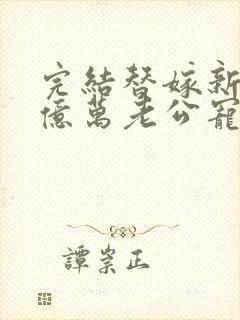 完結替嫁新
億萬老公寵
譚崇正